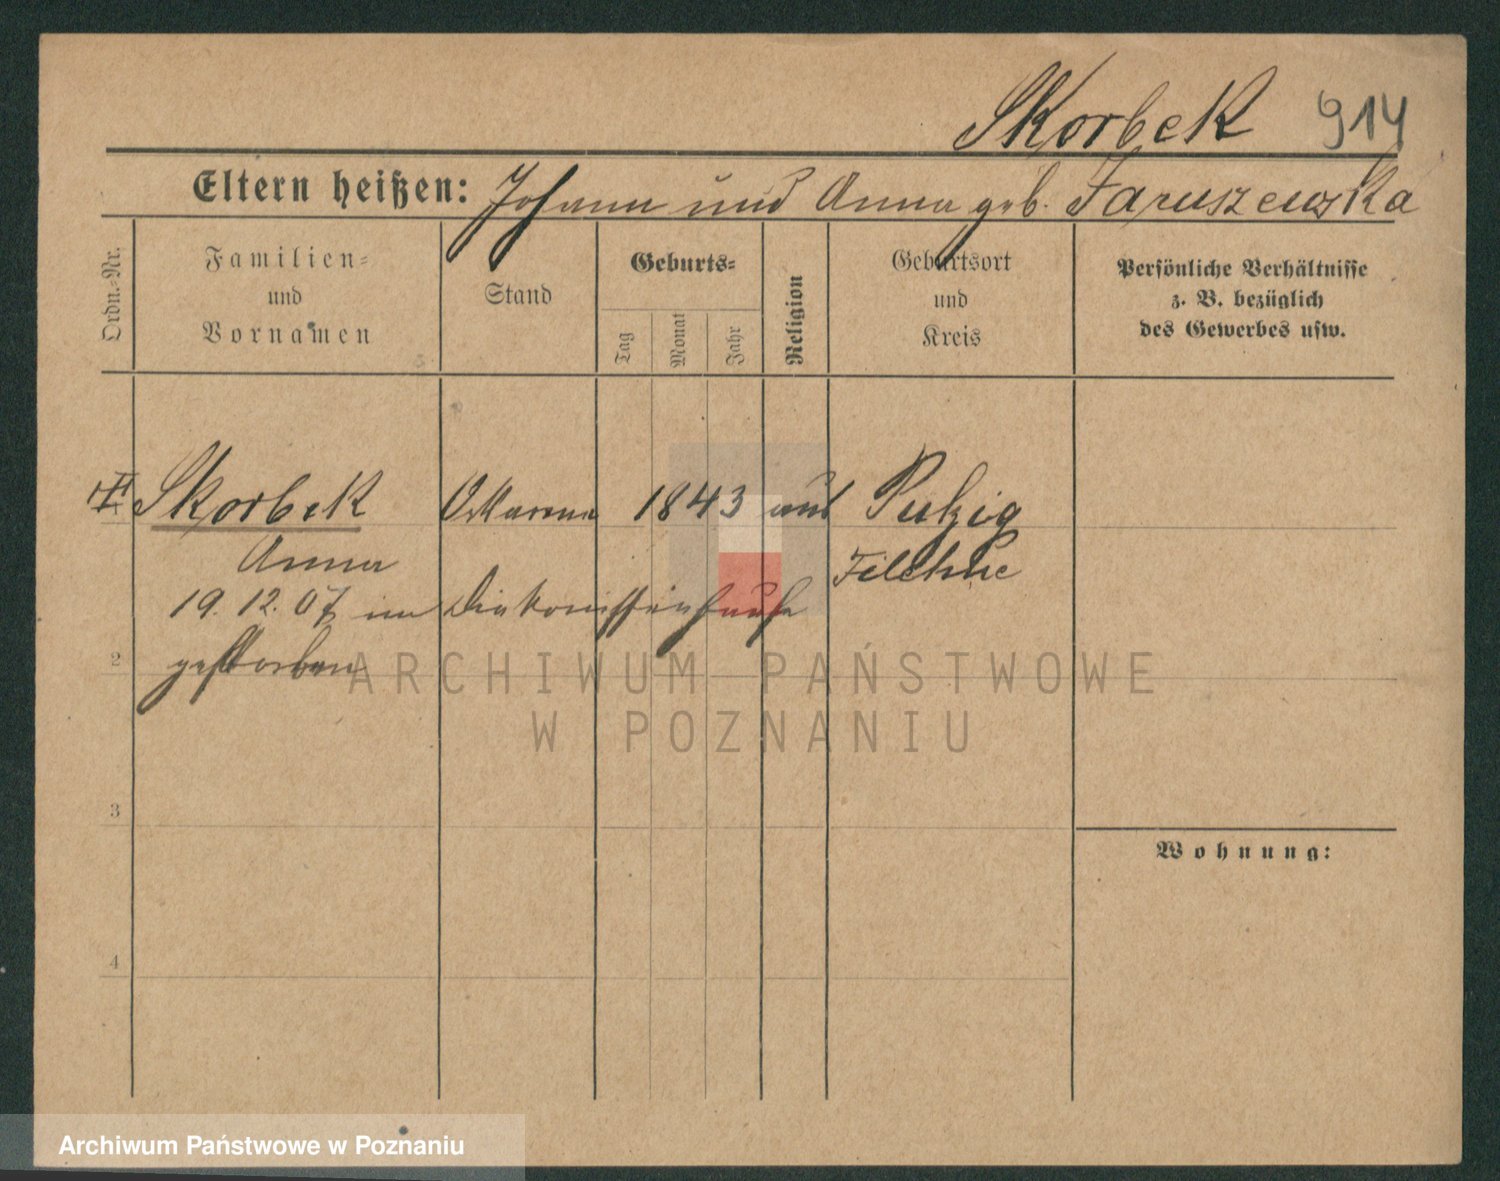 Skorbek 914
Eltern heißen: Johann und Anna geb. Jaruszewska
Ordn.-Nr.
Familien-
und
Vornamen
Stand
Geburts-
Tag
Monat
Jahr
Religion
Geburtsort
und
Kreis
Persönliche Verhältnisse
z. B. bezüglich
des Gewerbes usw.
Skorbek 1843 Putzig
Anna Filehne
19. 12. 07 im Diakonissenhause
gestorben
2
3
4
Wohnung:
ARCHIWUM PAŃSTWOWE
W POZNANIU
Archiwum Państwowe w Poznaniu